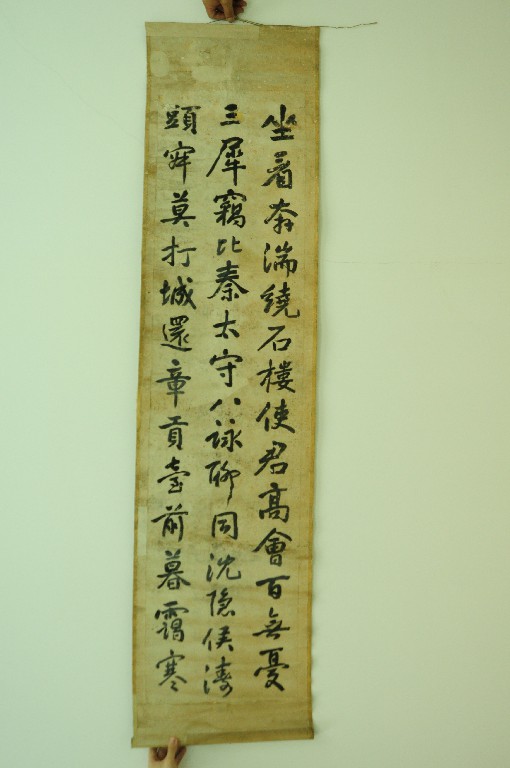 坐看奔湍繞石樓使君高會百無憂
三犀竊比秦太守八詠聊同沈隐侯濤
頭寂莫打城還章貢臺前暮靄寒